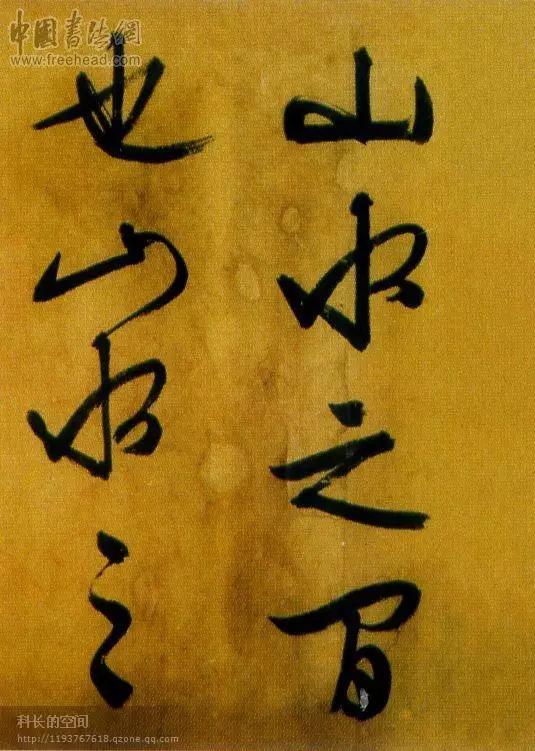 中国书法网
www.freehead.com
山水之間
也山水之
科长的空间
http://1193767618.qzone.qq.com